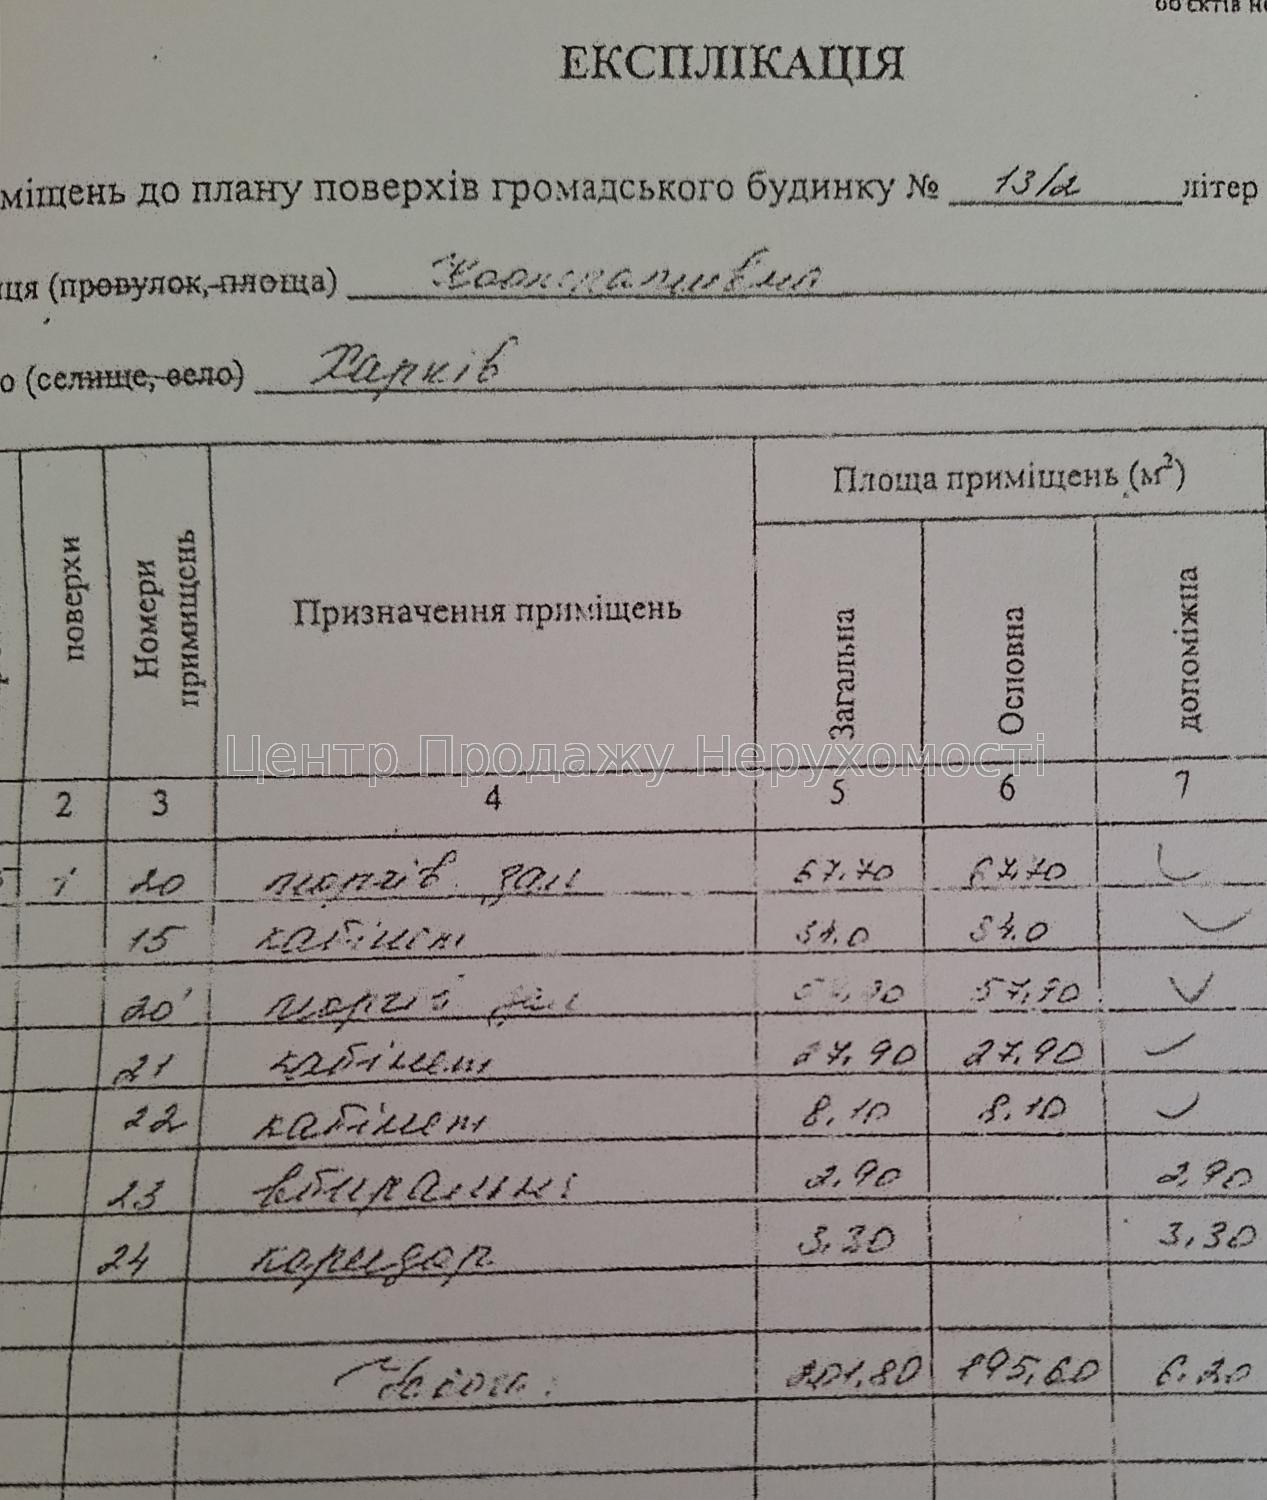 об'єктів
ЕКСПЛІКАЦІЯ
міщень до плану поверхів громадського будинку № 13/2 літер
ця (провулок, площа)
о (селище, село) Харків
поверхи Номери примищень Призначення приміщень Площа приміщень (м²)
Загальна Основна допоміжна
2 3 4 5 6 7
1 20 торгів. зал 67.70 67.70
15 кабінет 34.0 34.0
20' торгів зал 57,90
21 кабінет 27,90 27.90
22 кабінет 8,10 8,10
23 вбиральні 2,90 2,90
24 коридор 3,30 3,30
201,80 195,60 6.20
Центр Продажу Нерухомості